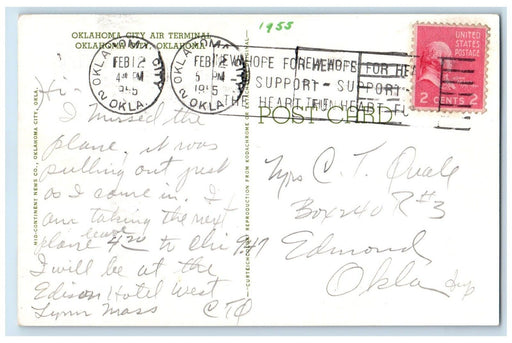 1955
OKLAHOMA CITY AIR TERMINAL
OKLAHOMA CITY, OKLAHOMA
OKLAHOMA CITY
FEB 12
4 PM
OKLA.
OKLAHOMA CITY
FEB 12
5 PM
OKLA.
NEW HOPE FOR HEARTS
SUPPORT - SUPPORT
THE HEART FUND
UNITED STATES
POSTAGE
2 CENTS 2
POST CARD
MID-CONTINENT NEWS CO., OKLAHOMA CITY, OKLA.
REPRODUCTION FROM KODACHROME OR
Hi -
I missed the
plane, it was
pulling out just
as I came in. I
am taking the next
plane leave 4:20 to Chi 9:47
I will be at the
Edison Hotel West
Lynn Mass
CTQ
Mrs C. T. Quale
Box 240 R#3
Edmond
Okla